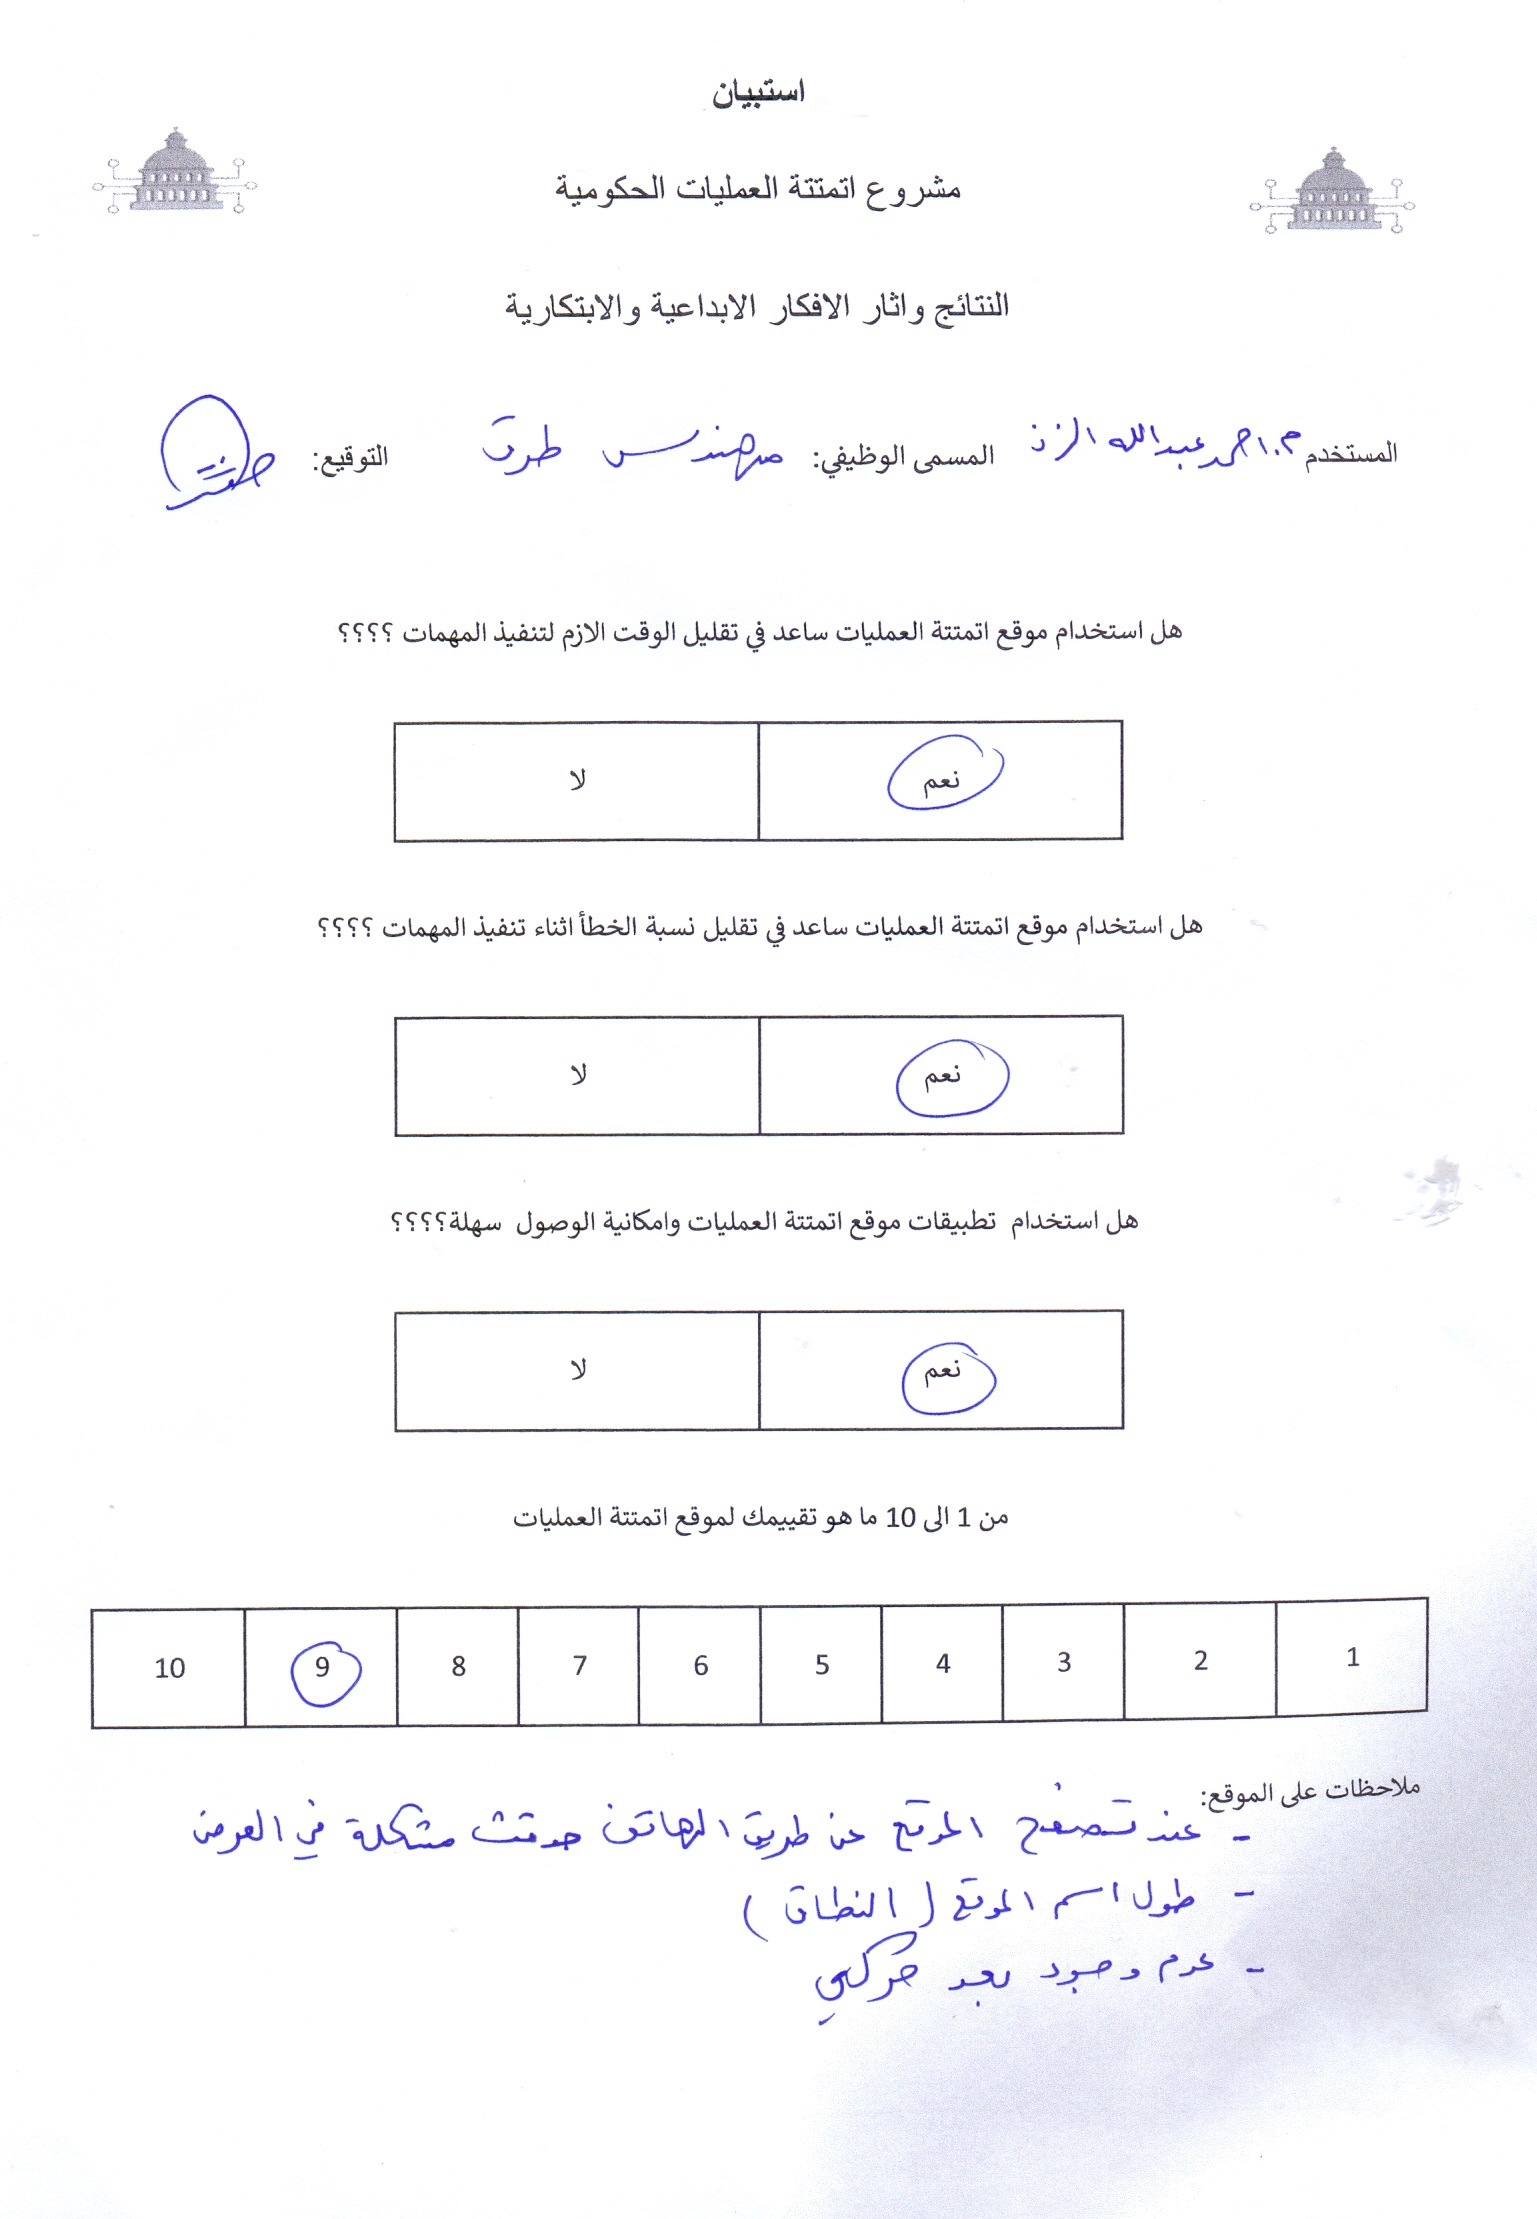 استبيان
مشروع اتمتتة العمليات الحكومية
النتائج واثار الافكار الابداعية والابتكارية
المستخدم م. احمد عبدالله الزز المسمى الوظيفي: مهندس طرق التوقيع:
هل استخدام موقع اتمتتة العمليات ساعد في تقليل الوقت الازم لتنفيذ المهمات ؟؟؟؟
نعم لا
هل استخدام موقع اتمتتة العمليات ساعد في تقليل نسبة الخطأ اثناء تنفيذ المهمات ؟؟؟؟
نعم لا
هل استخدام تطبيقات موقع اتمتتة العمليات وامكانية الوصول سهلة؟؟؟؟
نعم لا
من 1 الى 10 ما هو تقييمك لموقع اتمتتة العمليات
1 2 3 4 5 6 7 8 9 10
ملاحظات على الموقع:
- عند تصفح الموقع عن طريق الهاتف حدثت مشكلة في العرض
- طول اسم الموقع (النطاق)
- عدم وجود بعد حركي